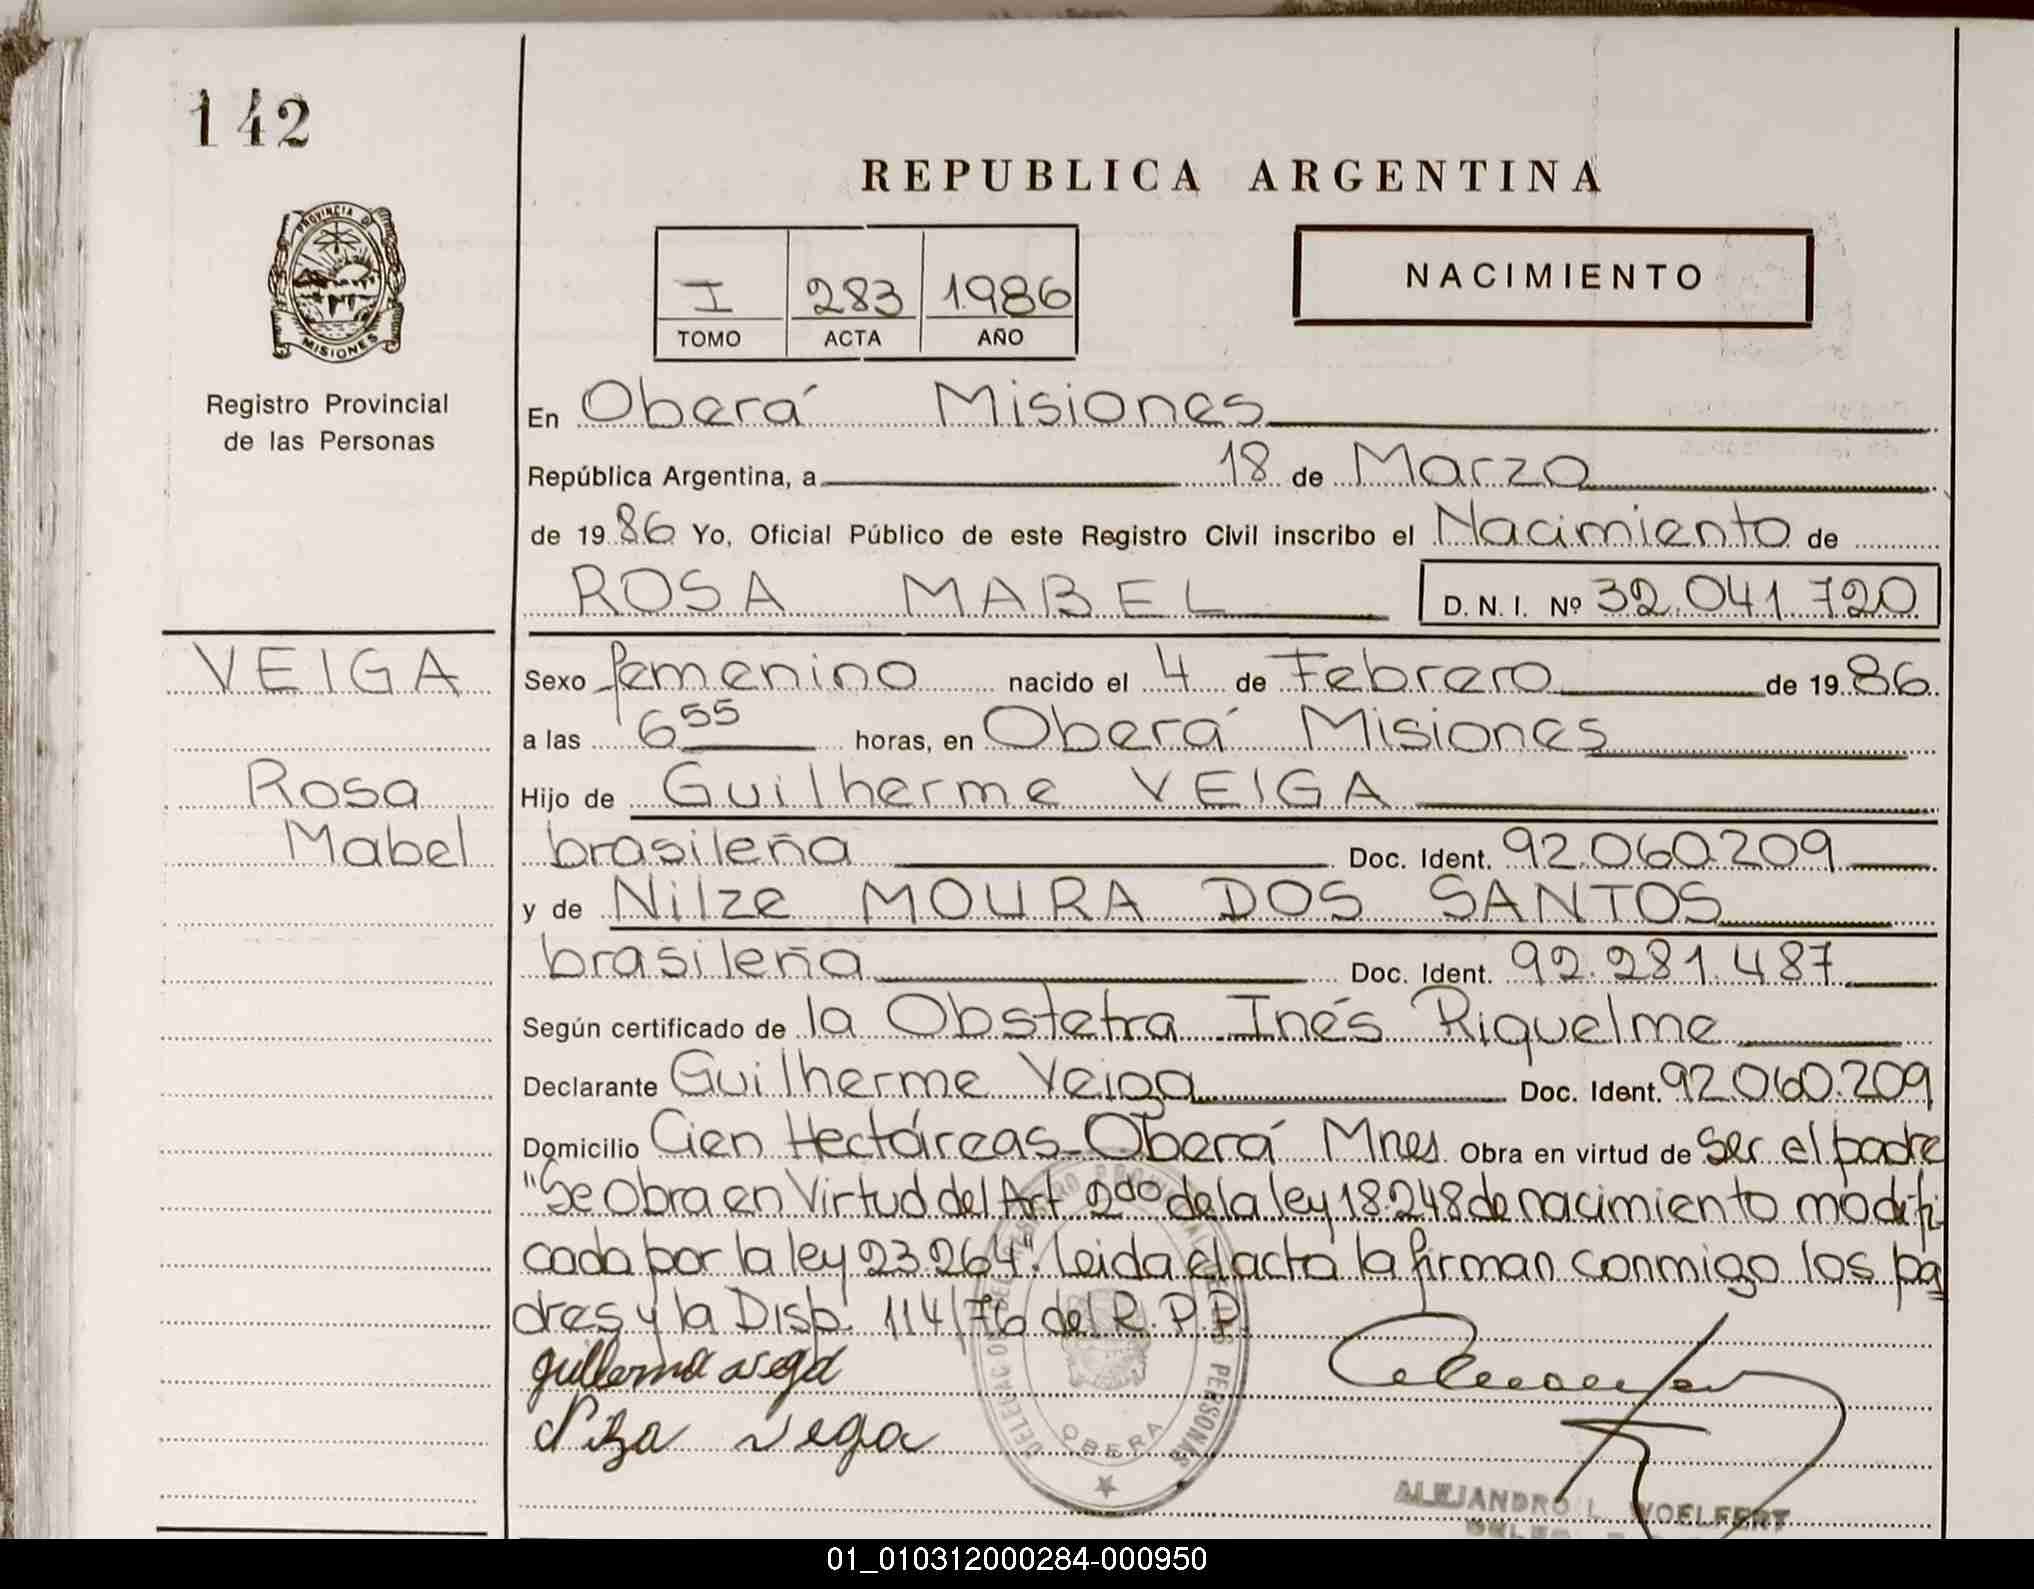 142
PROVINCIA DE
MISIONES
Registro Provincial
de las Personas
REPUBLICA ARGENTINA
I 283 1986
TOMO ACTA AÑO
NACIMIENTO
En Oberá Misiones
República Argentina, a 18 de Marzo
de 19 86 Yo, Oficial Público de este Registro Civil inscribo el Nacimiento de
ROSA MABEL D. N. I. Nº 32.041.720
VEIGA
Rosa
Mabel
Sexo femenino nacido el 4 de Febrero de 19 86
a las 6 55 horas, en Oberá Misiones
Hijo de Guilherme VEIGA
brasileña Doc. Ident. 92.060.209
y de Nilze MOURA DOS SANTOS
brasileña Doc. Ident. 92.281.487
Según certificado de la Obstetra Inés Riquelme
Declarante Guilherme Veiga Doc. Ident. 92.060.209
Domicilio Cien Hectáreas - Oberá Mnes Obra en virtud de ser el padre
"Se Obra en Virtud del Art 2do de la ley 18.248 de nacimiento modifi-
cada por la ley 23.264". Leida el acta la firman conmigo los pa
dres y la Disp. 114/76 del R.P.P.
Nilza Vega
PERSONAS
OBERA
ALEJANDRO L. WOELFERT
01_010312000284-000950